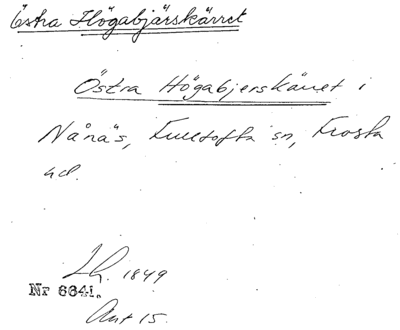 Östra Högabjärskärret
Östra Högabjerskärret i
Nånäs, Fulltofta sn, Frosta
hd.
Lh. 1849
Nr 6641.
Akt 15.